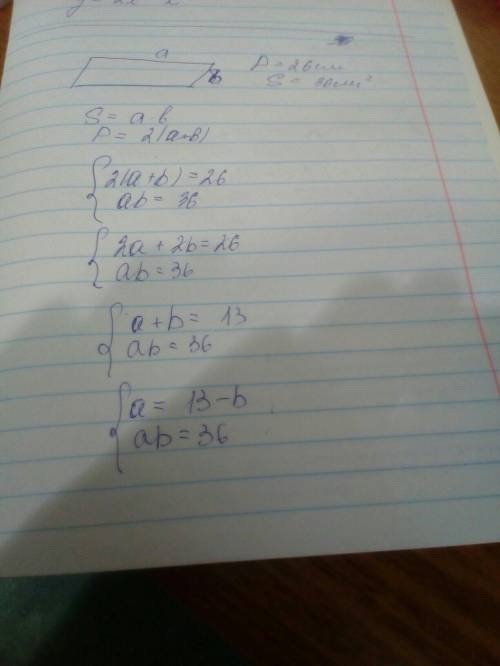 a
b
P = 26 см
S = 36 см²
S = a · b
P = 2(a+b)
2(a+b) = 26
ab = 36
2a + 2b = 26
ab = 36
a + b = 13
ab = 36
a = 13 - b
ab = 36